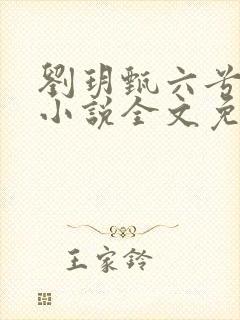 劉玥甄六号
小說全文免
王家鈴